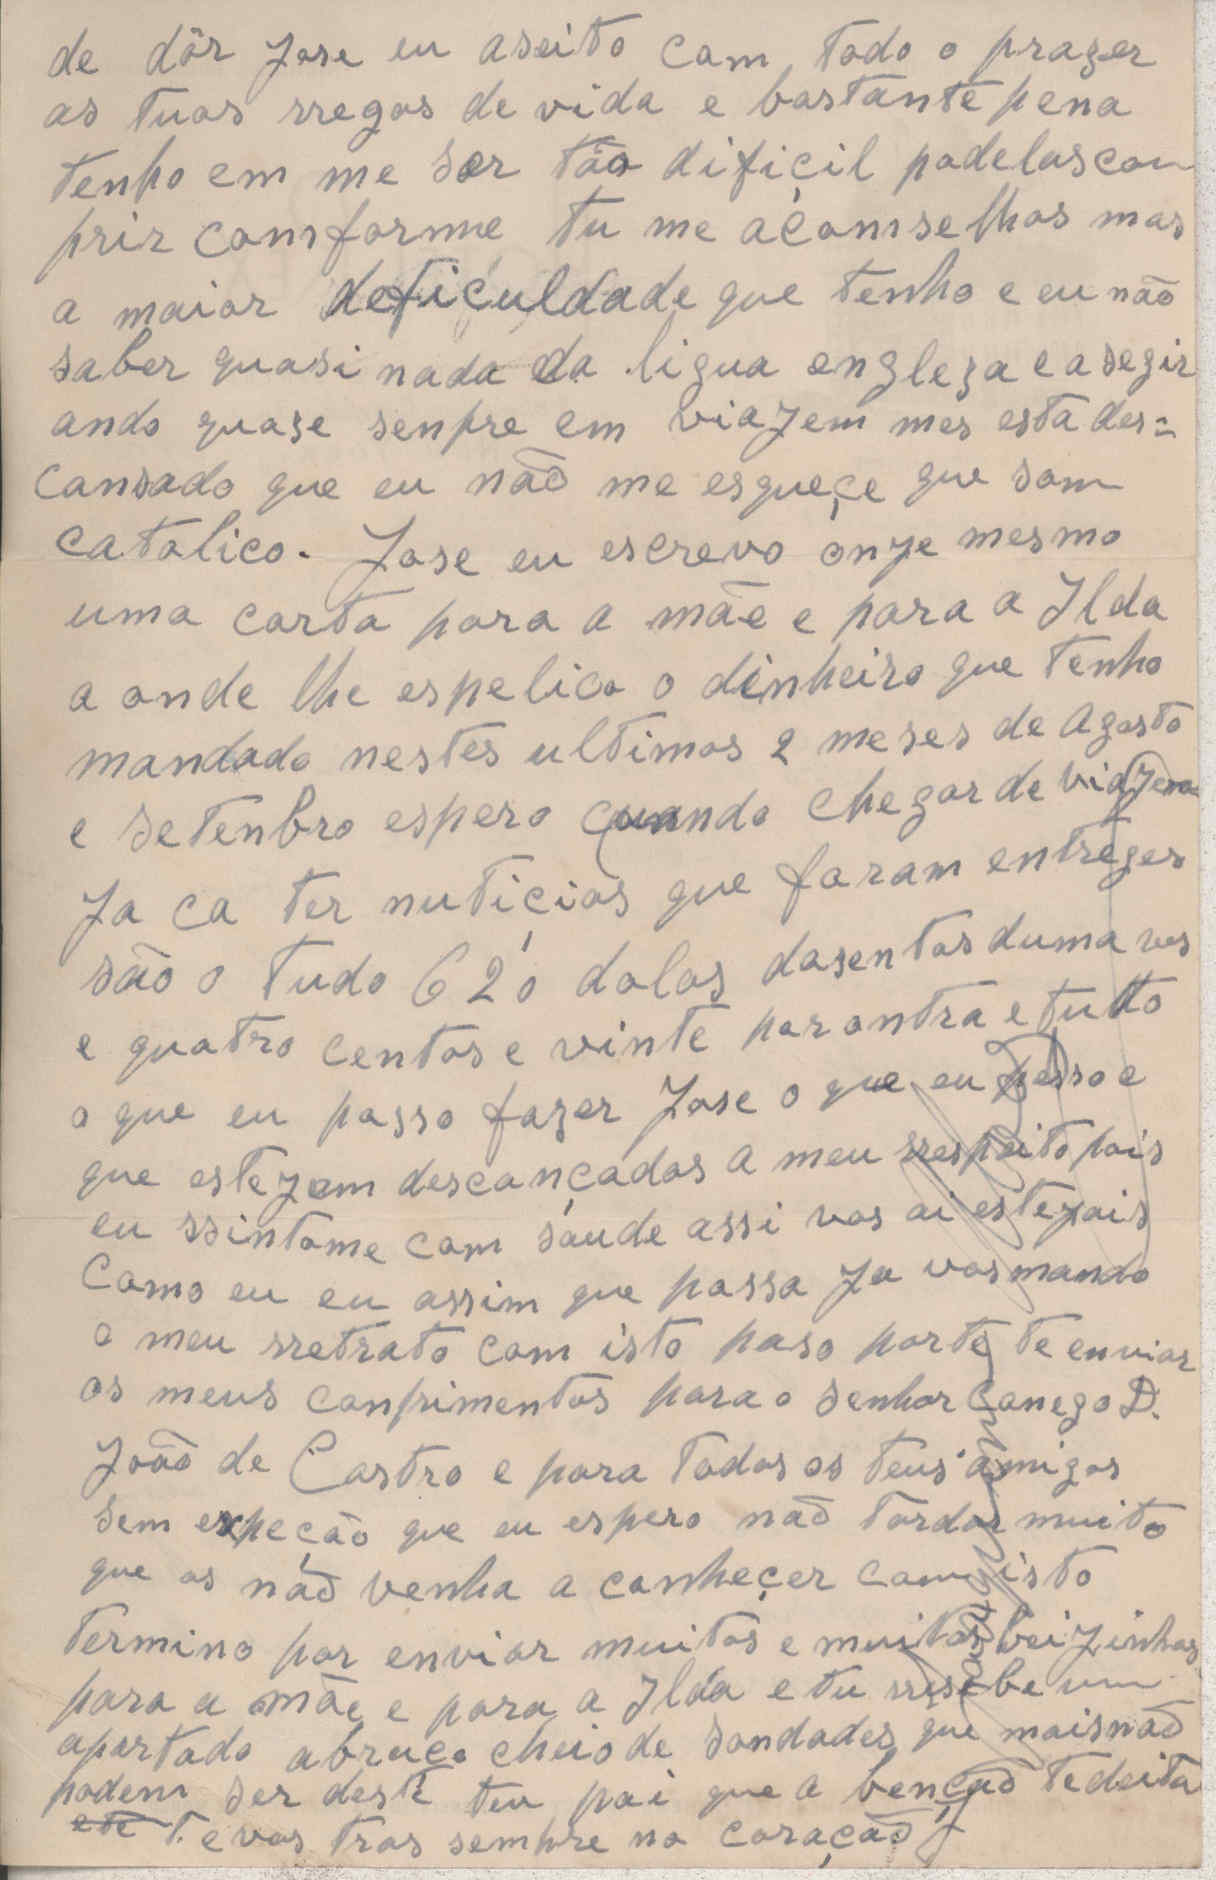 de dôr Jose eu aseito com todo o prazer
as tuas rregas de vida e bastante pena
tenho em me ser tão difiçil podelascon
prir comforme tu me açomselhas mas
a maior defiçuldade que tenho e eu não
saber quasi nada da ligua engleza e a segir
ando quaze senpre em viajem mes esta des=
cansado que eu não me esqueçe que som
catolico. Jose eu escrevo onje mesmo
uma carta para a mãe e para a Ilda
a onde lhe espelico o dinheiro que tenho
mandado nestes ultimos 2 meses de Agosto
e setenbro espero quando chegar de viajem
Ja ca ter nutiçias que foram entreges
são o tudo 620 dolas dozentos duma ves
e quatro centos e vinte por ontra e tutto
o que eu posso fazer Jose o que eu pesso e
que estejem descançados a meu rrespeito pois
eu ssintome com saude assi vos ai estejais
Como eu eu assim que possa Ja vos mando
o meu rretrato com isto peso porte te enviar
os meus conprimentos para o senhor Conego D.
João de Castro e para todos os teus amigos
sem expeção que eu espero não tardar muito
que os não venha a conheçer com isto
termino por enviar muitos e muitos beijinhos
para a mãe e para a Ilda e tu rresebe um
apertado abraço cheio de sandades que mais não
podem ser deste teu pai que a benção te deita
e vos tras sempre no coração